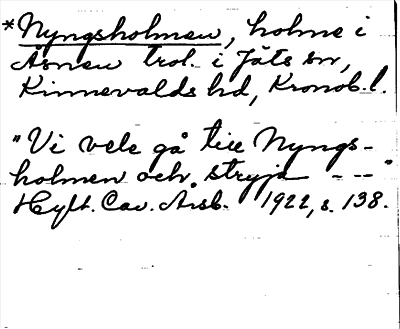 *Nyngsholmen, holme i
Åsnen trol. i Jäts sn,
Kinnevalds hd, Kronob.l.
"Vi vele gå till Nyngs-
holmen och stryja - - -"
Hylt. Cav. Årsb. 1922, s. 138.